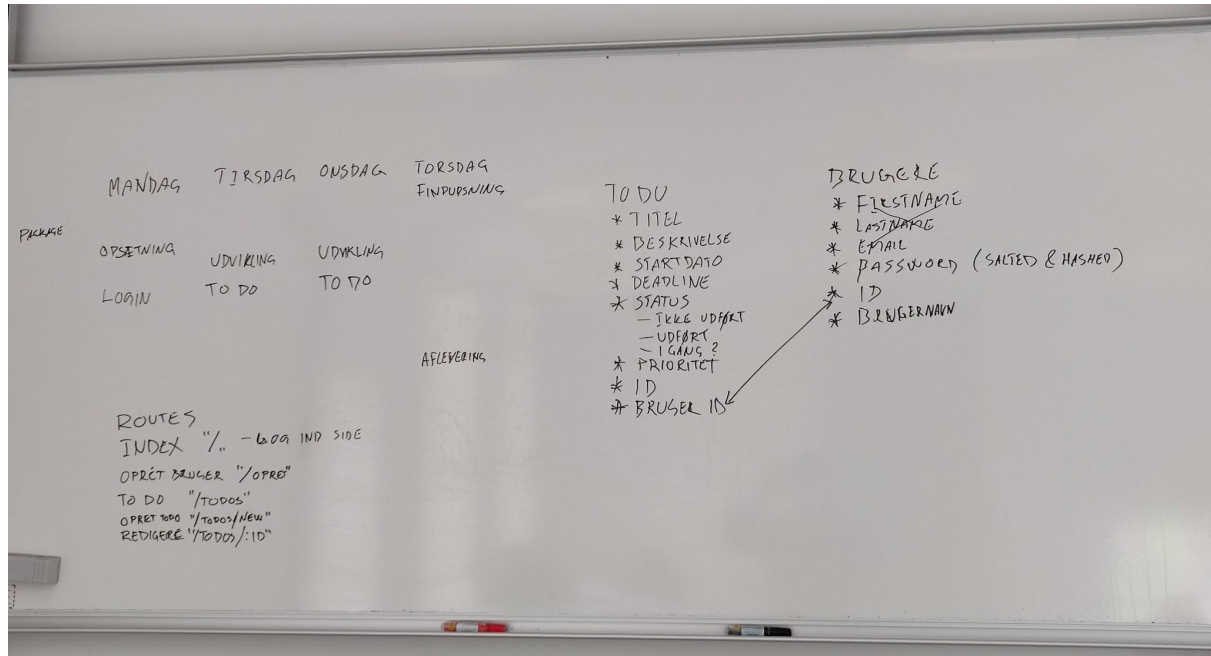 MANDAG TIRSDAG ONSDAG TORSDAG
FINPUDSNING
PACKAGE
OPSETNING UDVIKLING UDVIKLING
LOGIN TO DO TO DO
AFLEVERING
ROUTES
INDEX "/" - LOG IND SIDE
OPRET BRUGER "/OPRET"
TO DO "/TODOS"
OPRET TODO "/TODOS/NEW"
REDIGERE "/TODOS/:ID"
TO DO
* TITEL
* BESKRIVELSE
* STARTDATO
* DEADLINE
* STATUS
- IKKE UDFØRT
- UDFØRT
- I GANG ?
* PRIORITET
* ID
* BRUGER ID
BRUGERE
* FIRSTNAME
* LASTNAME
* EMAIL
* PASSWORD (SALTED & HASHED)
* ID
* BRUGERNAVN